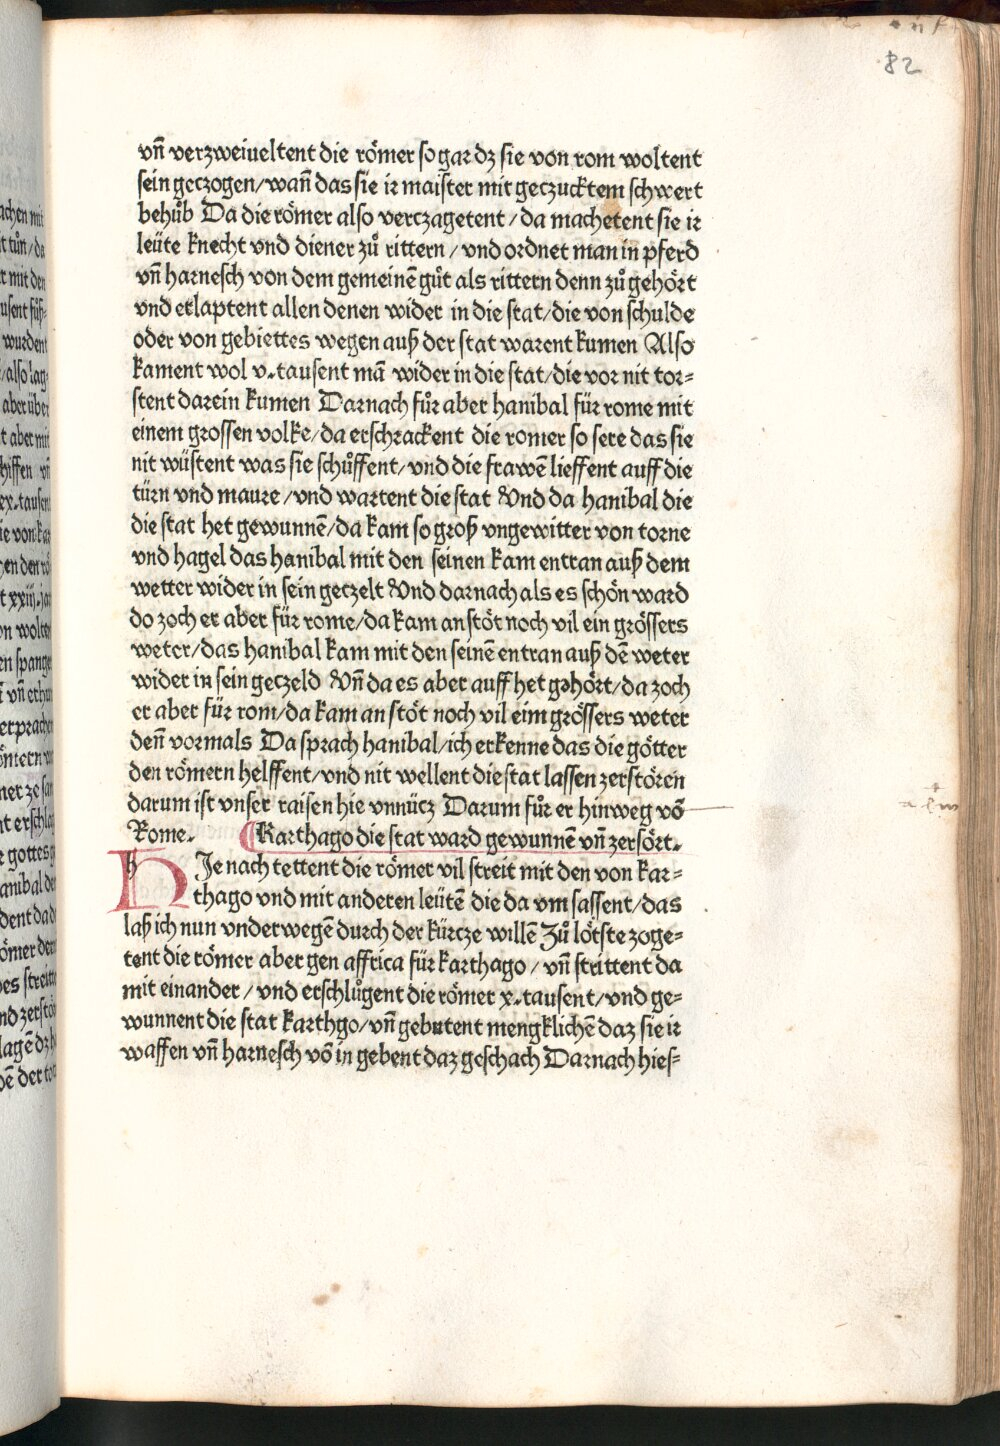 82
vn̄ verzweiueltent die römer so gar dz sie von rom woltent
sein geczogen/wan̄ das sie ir maister mit geczucktem schwert
behůb Da die römer also verczagetent/da machetent sie ir
leüte knecht vnd diener zů rittern/vnd ordnet man in pferd
vn̄ harnesch von dem gemeinē gůt als rittern denn zů gehört
vnd erlaptent allen denen wider in die stat/die von schulde
oder von gebiettes wegen auß der stat warent kumen Also
kament wol v.tausent mā wider in die stat/die vor nit tor=
stent darein kumen Darnach fůr aber hanibal für rome mit
einem grossen volke/da erschrackent die romer so sere das sie
nit wüstent was sie schůffent/vnd die frawē lieffent auff die
türn vnd maure/vnd wartent die stat Vnd da hanibal die
die stat het gewunnē/da kam so groß vngewitter von torne
vnd hagel das hanibal mit den seinen kam entran auß dem
wetter wider in sein geczelt Vnd darnach als es schön ward
do zoch er aber für rome/da kam an stöt noch vil ein grössers
weter/das hanibal kam mit den seinē entran auß dē weter
wider in sein geczeld Vn̄ da es aber auff het gehört/da zoch
er aber für rom/da kam an stöt noch vil eim grössers weter
den̄ vormals Da sprach hanibal/ich erkenne das die götter
den römern helffent/vnd nit wellent die stat lassen zerstören
darum ist vnser raisen hie vnnücz Darum fůr er hinweg vō
Rome. ¶Karthago die stat ward gewunnē vn̄ zersört.
HJe nach tettent die römer vil streit mit den von kar=
thago vnd mit anderen leütē die da vm sassent/das
laß ich nun vnderwegē durch der kürcze willē Zů lötste zoge=
tent die römer aber gen affrica für karthago/vn̄ strittent da
mit einander/vnd erschlůgent die römer x.tausent/vnd ge=
wunnent die stat karthgo/vn̄ gebutent mengklichē daz sie ir
waffen vn̄ harnesch vō in gebent daz geschach Darnach hies=